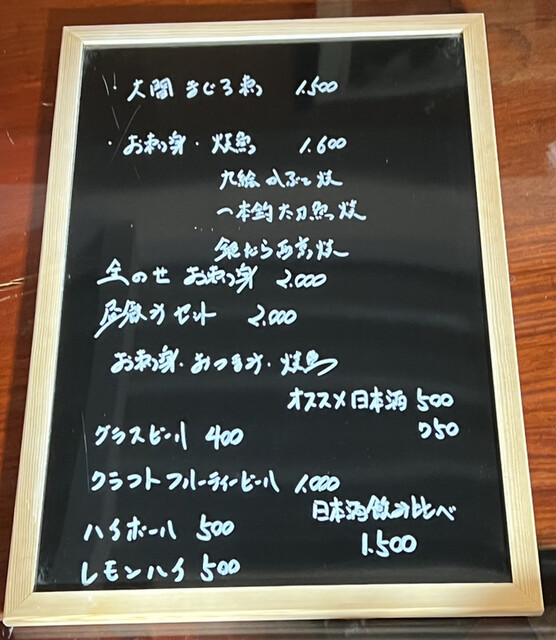 ・大間まぐろ煮 1.500
・お刺身・焼魚 1.600
九絵かぶと焼
一本釣太刀魚焼
銀だら西京焼
全のせ お刺身 2.000
昼飲みセット 2.000
お刺身・おつまみ・焼魚
オススメ日本酒 500
750
グラスビール 400
クラフトフルーティービール 1.000
日本酒飲み比べ
1.500
ハイボール 500
レモンハイ 500